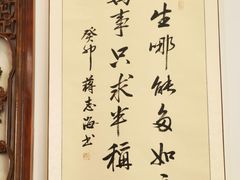 生哪能多如
事只求半稱
癸卯 蒋志海书